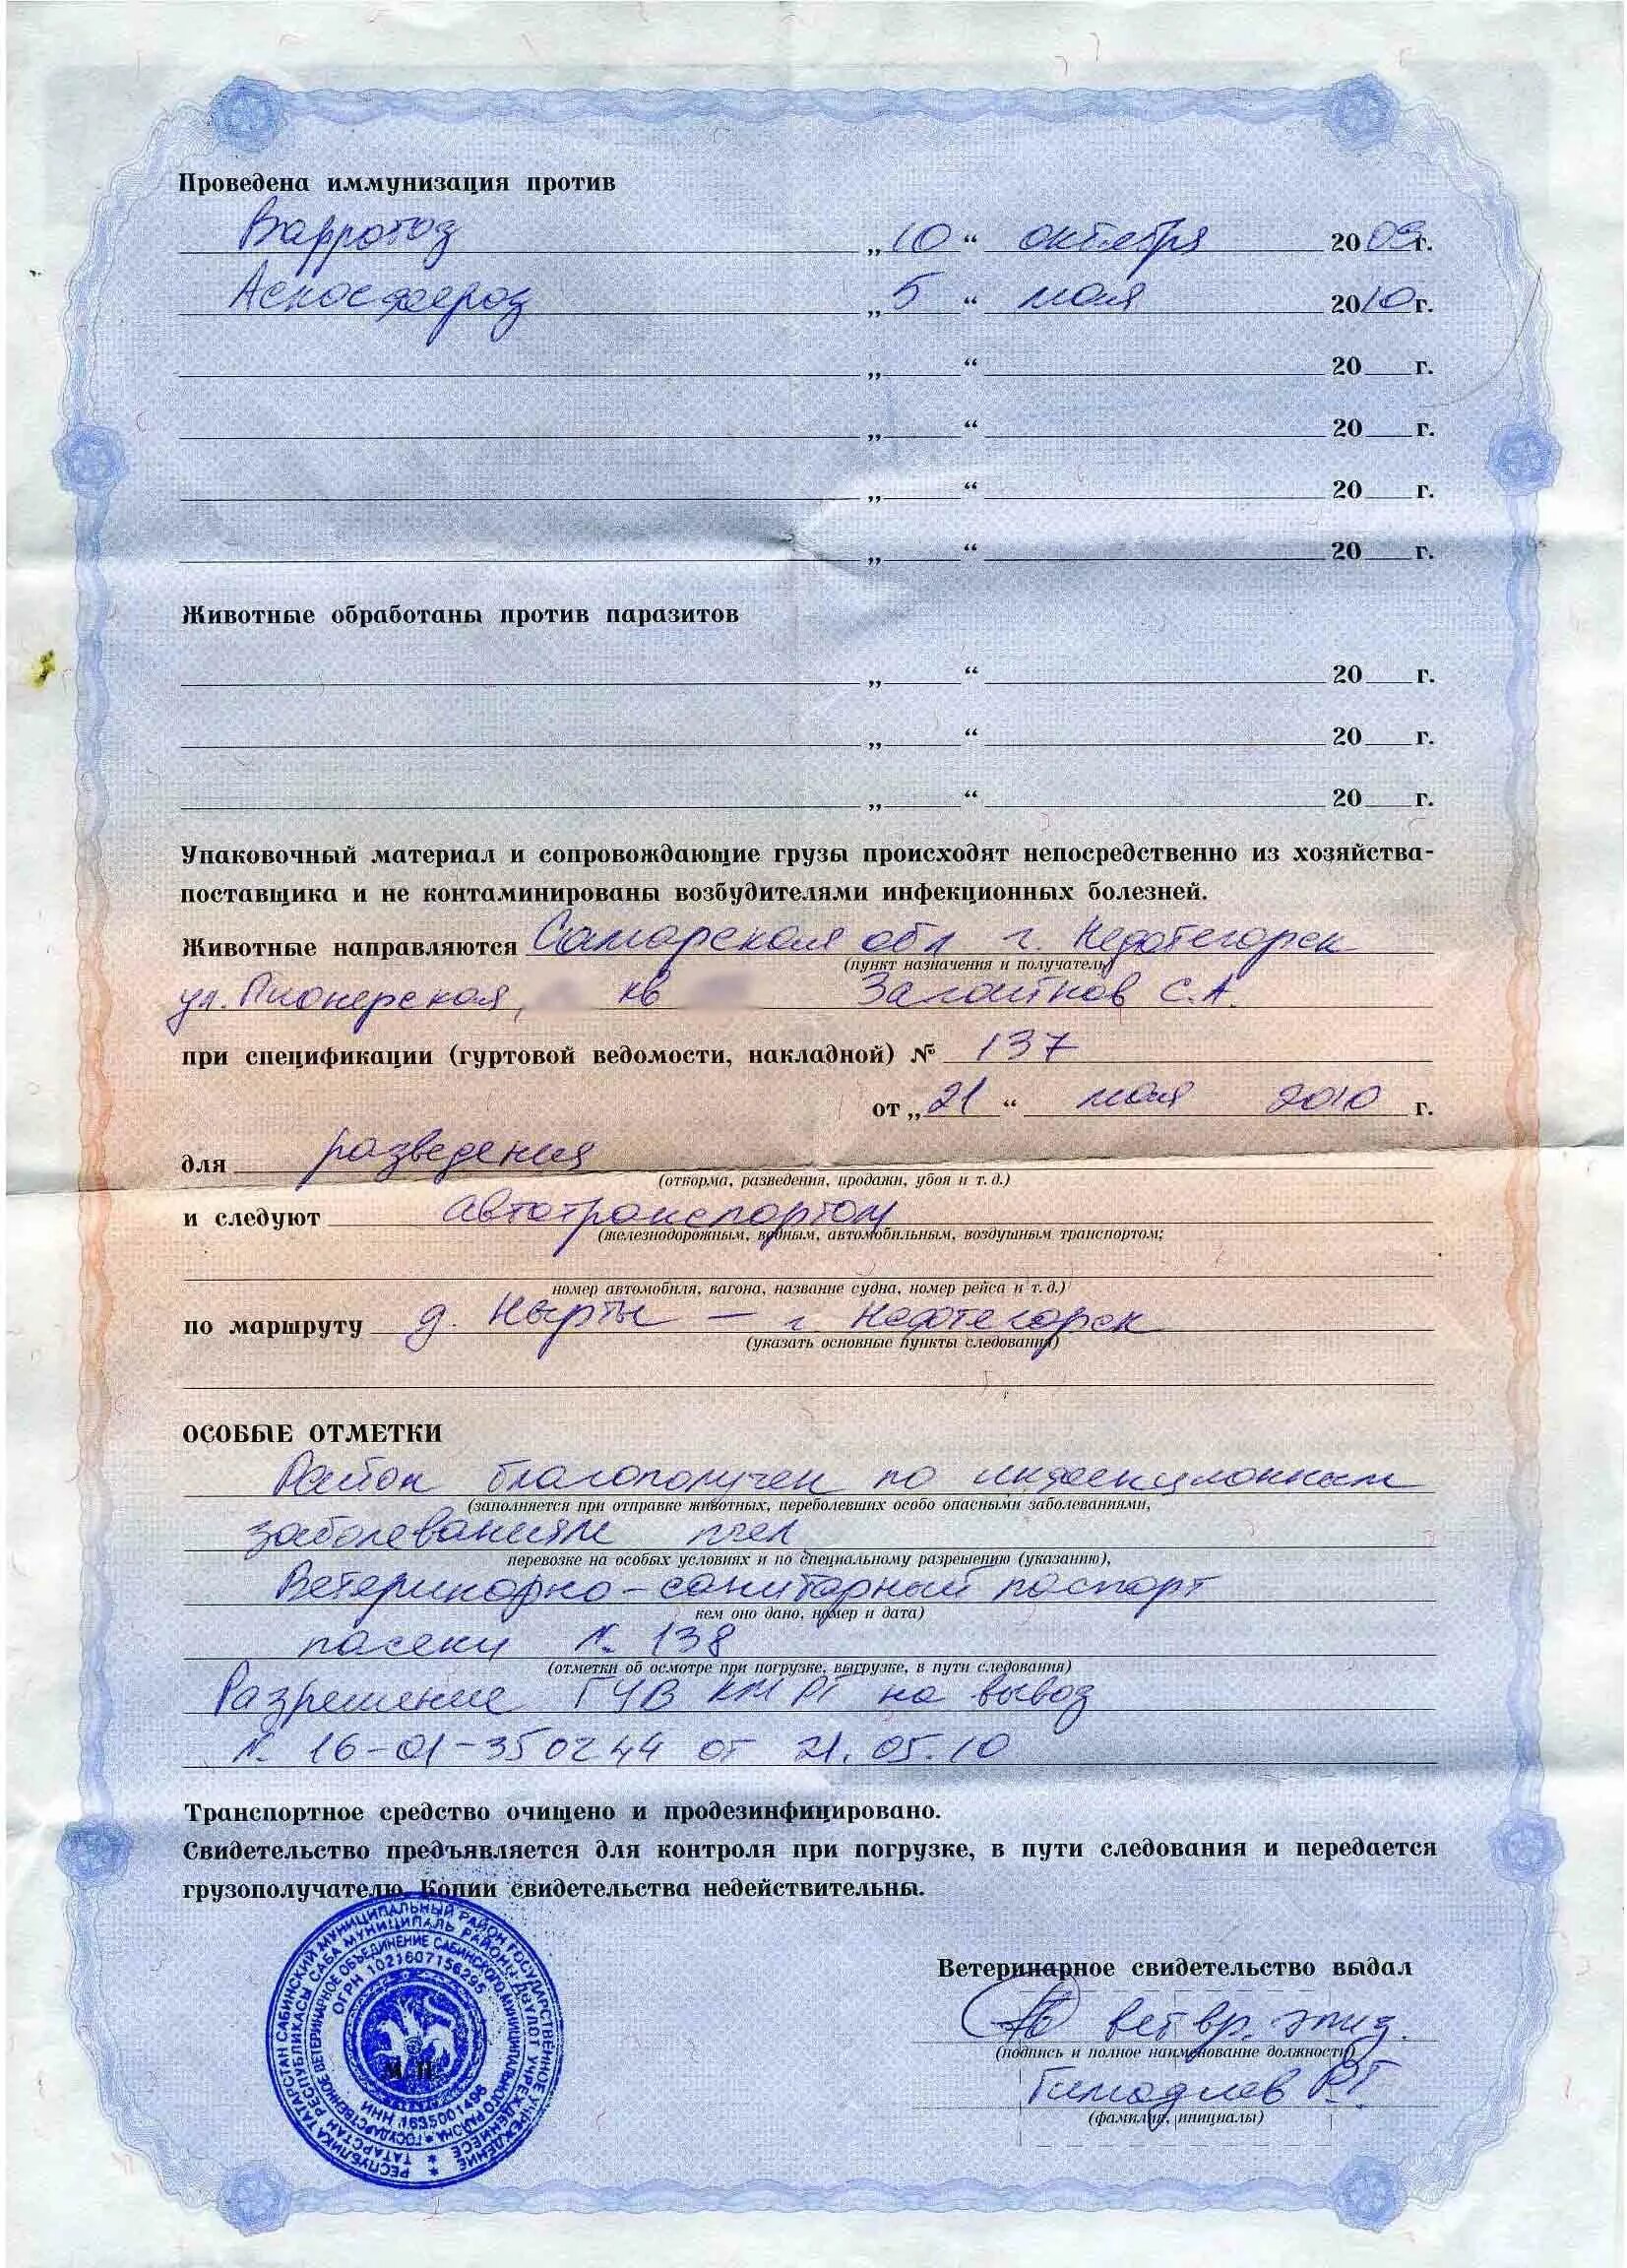 Проведена иммунизация против
Варротоз „ 10 “ октября 2009г.
Аскосфероз „ 5 “ мая 2010г.
„ “ 20 г.
„ “ 20 г.
„ “ 20 г.
„ “ 20 г.
Животные обработаны против паразитов
„ “ 20 г.
„ “ 20 г.
„ “ 20 г.
Упаковочный материал и сопровождающие грузы происходят непосредственно из хозяйства-
поставщика и не контаминированы возбудителями инфекционных болезней.
Животные направляются Самарская обл г. Нефтегорск
(пункт назначения и получатель)
ул. Пионерская, кв Загайнов С.А.
при спецификации (гуртовой ведомости, накладной) № 137
от „ 21 “ мая 2010 г.
для разведения
(откорма, разведения, продажи, убоя и т. д.)
и следуют автотранспортом
(железнодорожным, водным, автомобильным, воздушным транспортом;
номер автомобиля, вагона, название судна, номер рейса и т. д.)
по маршруту д. Нырты – г Нефтегорск
(указать основные пункты следования)
ОСОБЫЕ ОТМЕТКИ
Район благополучен по инфекционным
(заполняется при отправке животных, переболевших особо опасными заболеваниями,
заболеваниям пчел
перевозке на особых условиях и по специальному разрешению (указанию),
Ветеринарно-санитарный паспорт
кем оно дано, номер и дата)
пасеки № 138
(отметки об осмотре при погрузке, выгрузке, в пути следования)
Разрешение ГУВ КМ РТ на вывоз
№ 16-01-350244 от 21.05.10
Транспортное средство очищено и продезинфицировано.
Свидетельство предъявляется для контроля при погрузке, в пути следования и передается
грузополучателю. Копии свидетельства недействительны.
РЕСПУБЛИКА ТАТАРСТАН САБИНСКИЙ МУНИЦИПАЛЬНЫЙ РАЙОН ГОСУДАРСТВЕННОЕ УЧРЕЖДЕНИЕ
ТАТАРСТАН РЕСПУБЛИКАСЫ САБА МУНИЦИПАЛЬ РАЙОНЫ ДӘҮЛӘТ УЧРЕЖДЕНИЕСЕ
ГОСУДАРСТВЕННОЕ ВЕТЕРИНАРНОЕ ОБЪЕДИНЕНИЕ САБИНСКОГО МУНИЦИПАЛЬНОГО РАЙОНА
ОГРН 1021607156295
ИНН 1635001496
М. П.
Ветеринарное свидетельство выдал
вет вр. эпиз.
(подпись и полное наименование должности)
Р.Г.
(фамилия, инициалы)